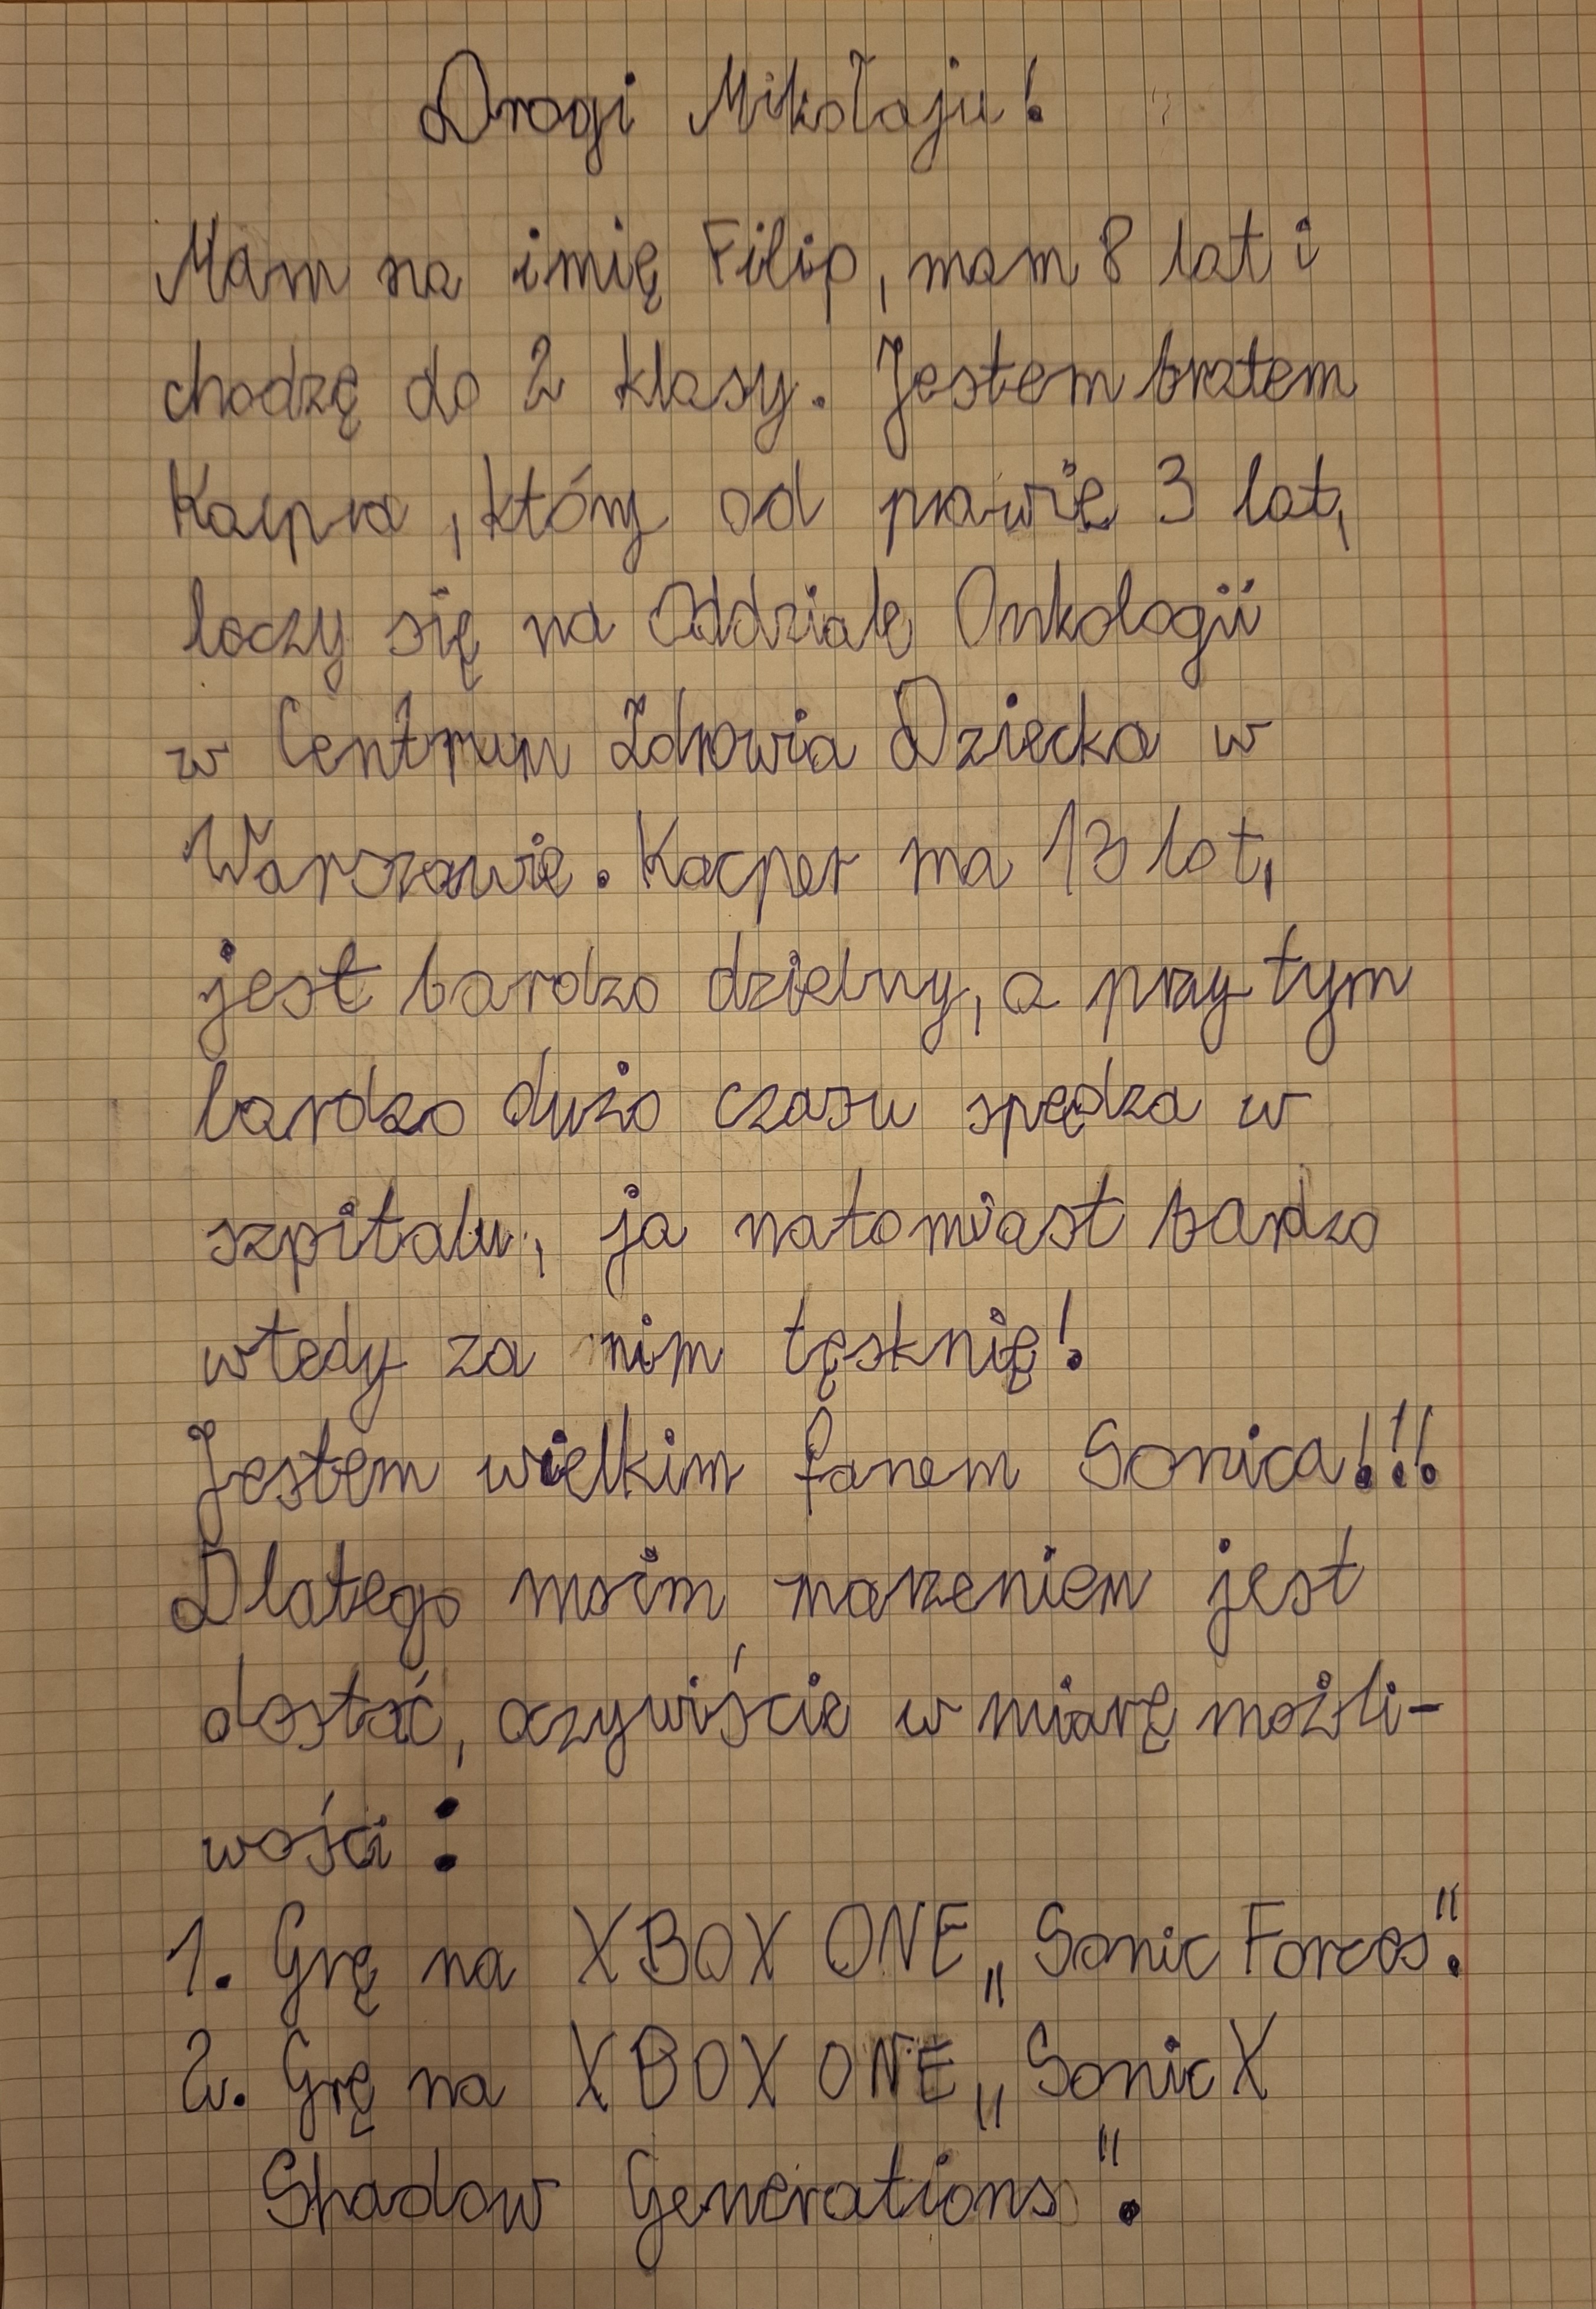 Drogi Mikołaju!
Mam na imię Filip, mam 8 lat i
chodzę do 2 klasy. Jestem bratem
Kacpra, który od prawie 3 lat,
leczy się na Oddziale Onkologii
w Centrum Zdrowia Dziecka w
Warszawie. Kacper ma 13 lat,
jest bardzo dzielny, a przy tym
bardzo dużo czasu spędza w
szpitalu, ja natomiast bardzo
wtedy za nim tęsknię!
Jestem wielkim fanem Sonica!!!
Dlatego moim marzeniem jest
dostać, oczywiście w miarę możli-
wości:
1. Grę na XBOX ONE „Sonic Forces".
2. Grę na XBOX ONE „Sonic X
Shadow Generations".